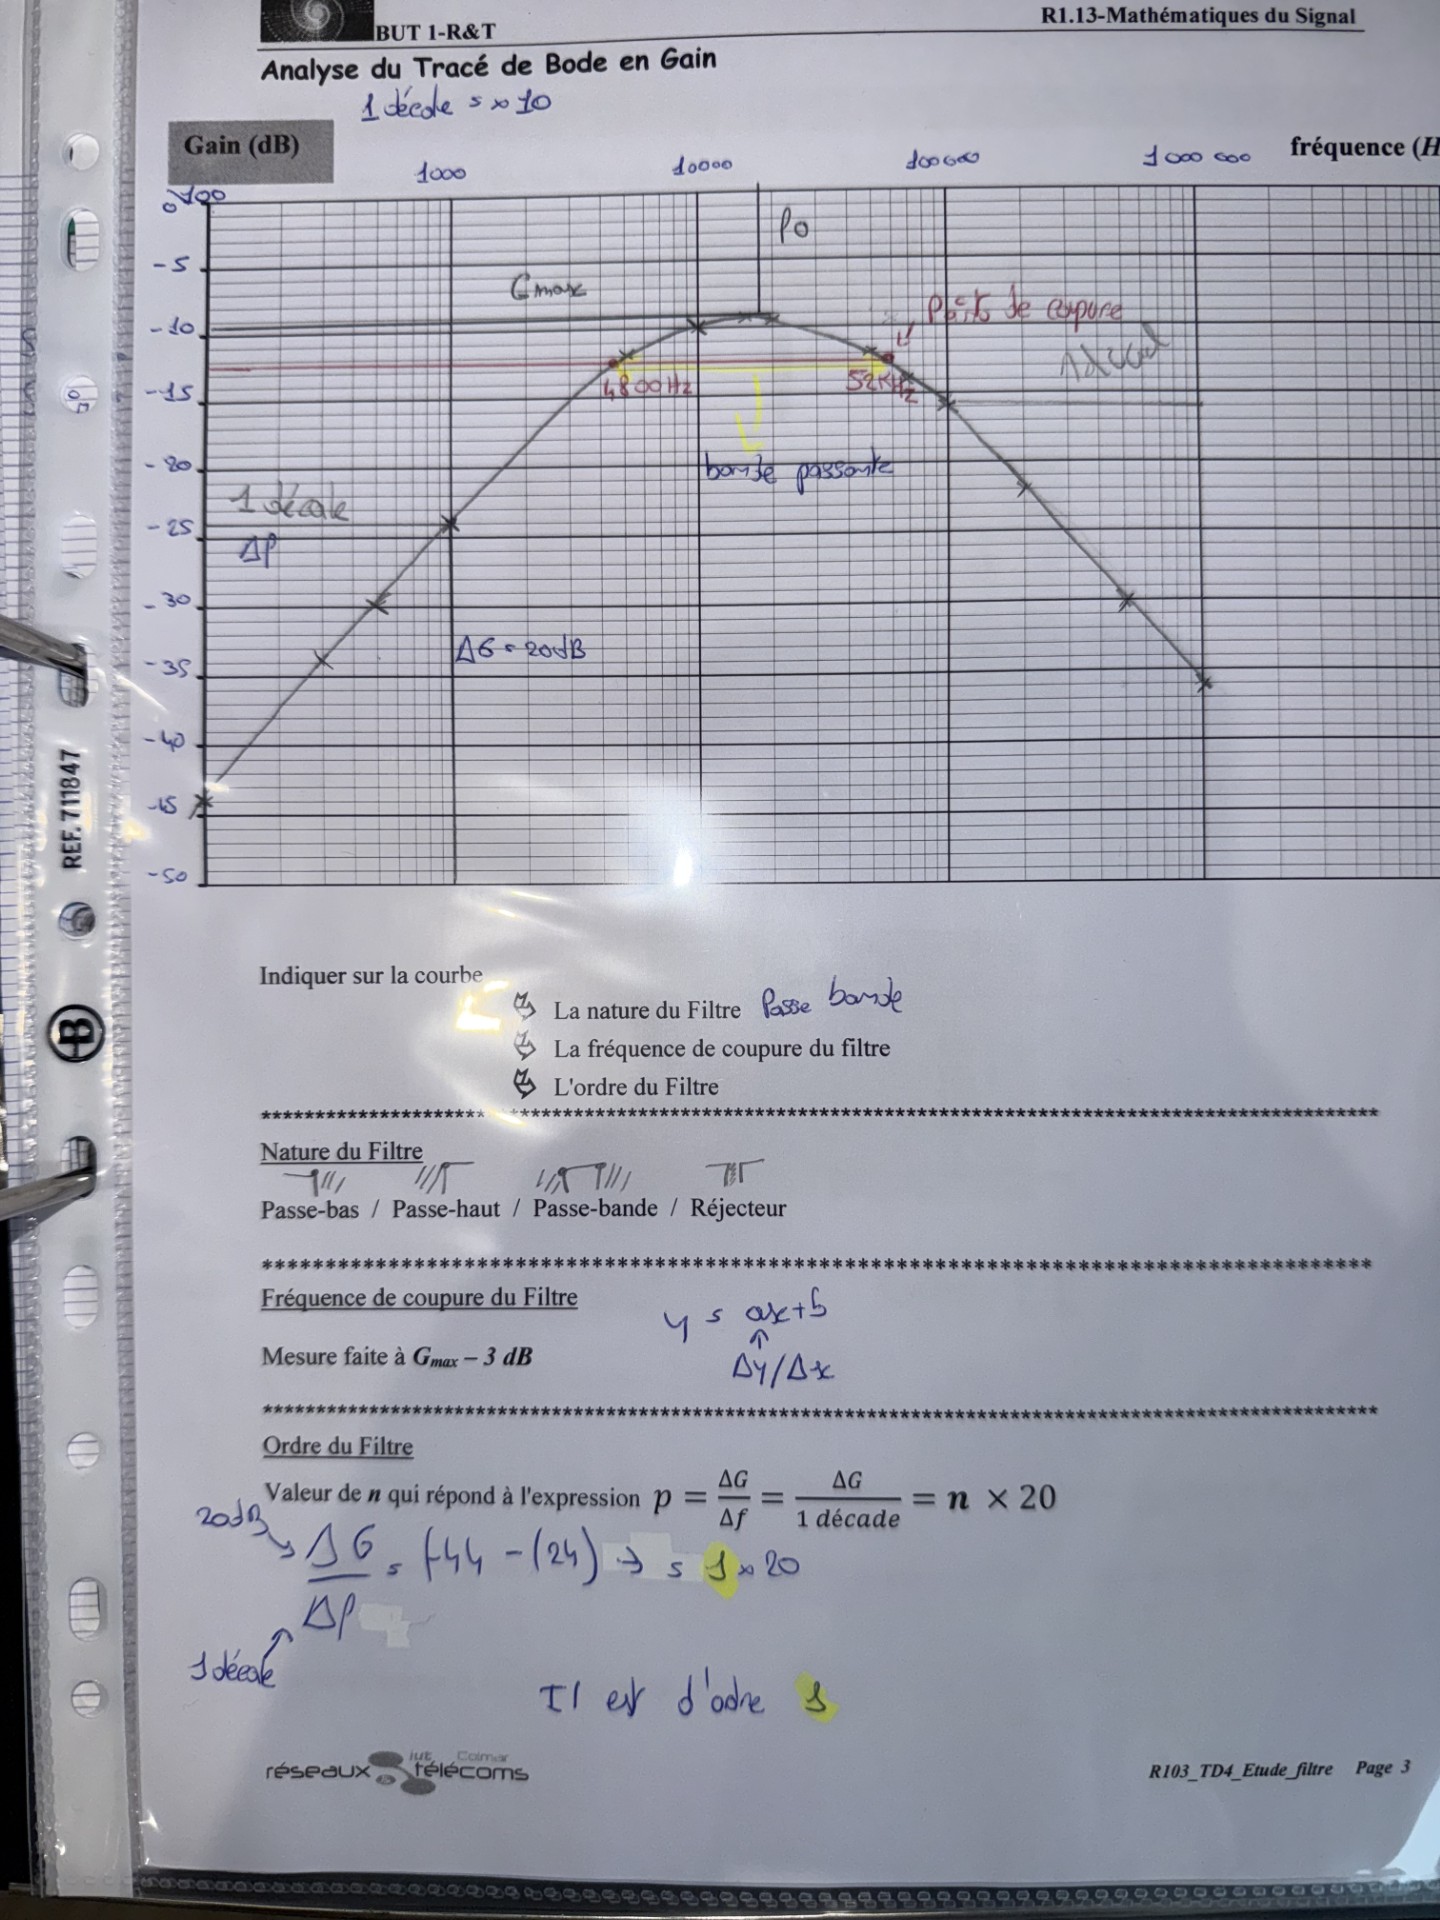 BUT 1-R&T
R1.13-Mathématiques du Signal
Analyse du Tracé de Bode en Gain
1 décade = x 10
Gain (dB)
1000 10000 100000 1 000 000
fréquence (H
0 100
-5
-10
-15
-20
-25
-30
-35
-40
-45
-50
f0
Gmax
Pts de coupure
4800Hz
52KHz
bande passante
1 décade
Δf
ΔG = 20dB
Indiquer sur la courbe
La nature du Filtre Passe bande
La fréquence de coupure du filtre
L'ordre du Filtre
********************************************************************************
Nature du Filtre
Passe-bas / Passe-haut / Passe-bande / Réjecteur
********************************************************************************
Fréquence de coupure du Filtre
y = ax+b
Mesure faite à Gmax – 3 dB
↑
Δy/Δx
********************************************************************************
Ordre du Filtre
Valeur de n qui répond à l'expression p = ΔG/Δf = ΔG/1 décade = n × 20
20dB
ΔG/Δf = (-44 - (24) → = 1 x 20
1 décade
Il est d'odre 1
réseaux télécoms
iut Colmar
R103_TD4_Etude_filtre Page 3
REF. 711847
B